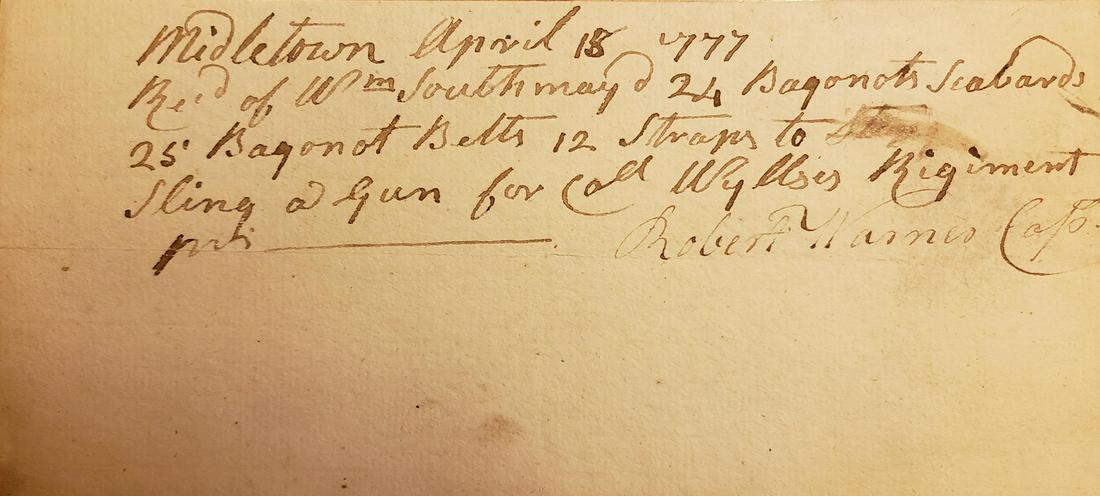 Midletown April 18 1777
Recd of Wm Southmayd 24 Bagonots Scabards
25 Bagonot Belts 12 Straps to
Sling a Gun for Coll Wyllses Rigiment
pr
Robert Warner Capt